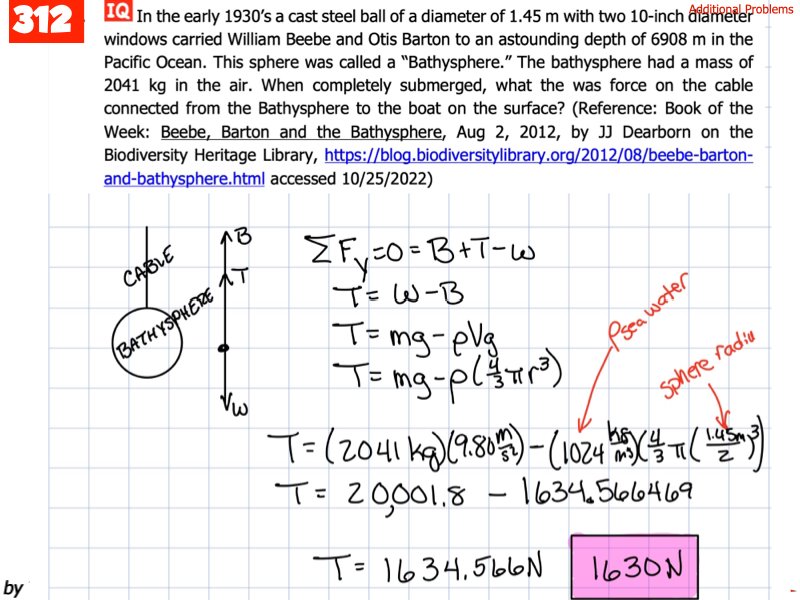 Additional Problems
312
IQ In the early 1930's a cast steel ball of a diameter of 1.45 m with two 10-inch diameter
windows carried William Beebe and Otis Barton to an astounding depth of 6908 m in the
Pacific Ocean. This sphere was called a "Bathysphere." The bathysphere had a mass of
2041 kg in the air. When completely submerged, what the was force on the cable
connected from the Bathysphere to the boat on the surface? (Reference: Book of the
Week: Beebe, Barton and the Bathysphere, Aug 2, 2012, by JJ Dearborn on the
Biodiversity Heritage Library, https://blog.biodiversitylibrary.org/2012/08/beebe-barton-
and-bathysphere.html accessed 10/25/2022)
CABLE
BATHYSPHERE
B
T
W
ΣFy=0=B+T-w
T= W-B
T= mg-ρVg
T= mg-ρ(4/3 πr³)
ρsea water
sphere radiu
T=(2041 kg)(9.80 m/s²)-(1024 kg/m³)(4/3 π(1.45m/2)³)
T= 20,001.8 - 1634.566469
T= 1634.566N 1630N
by